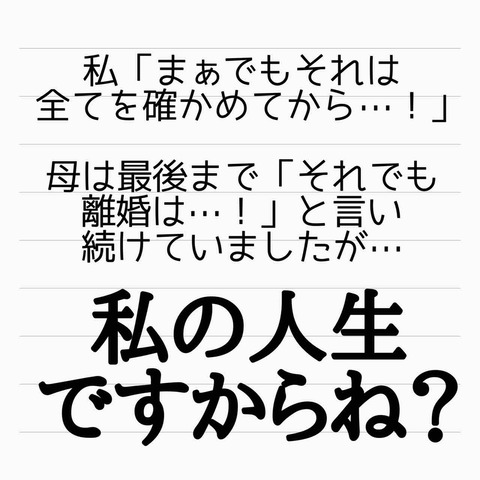 私「まぁでもそれは
全てを確かめてから…！」
母は最後まで「それでも
離婚は…！」と言い
続けていましたが…
私の人生
ですからね？